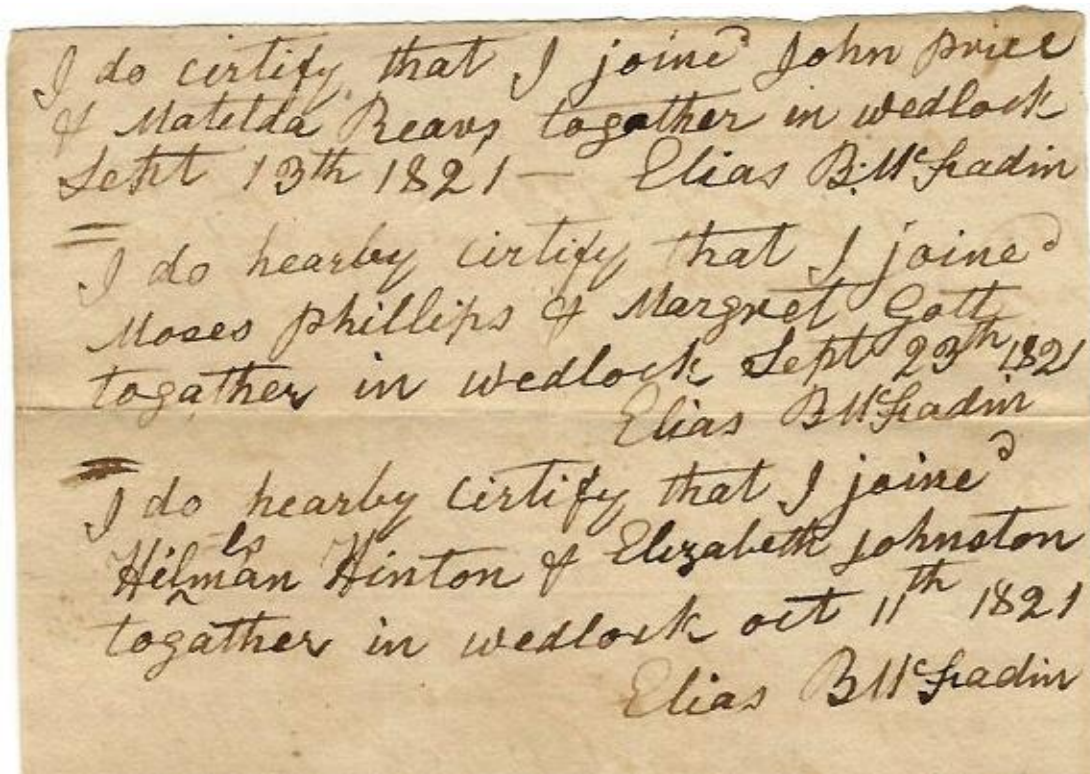 I do cirtify that I joind John price
& Matilda Reavs togather in wedlock
Sept 13th 1821 — Elias B. McFadin
I do hearby cirtify that I joined
Moses phillips & Margret Gott
togather in wedlock Sept 23th 1821
Elias B McFadin
I do hearby cirtify that I joined
Hilman Hinton & Elizabeth johnston
togather in wedlock oct 11th 1821
Elias B McFadin